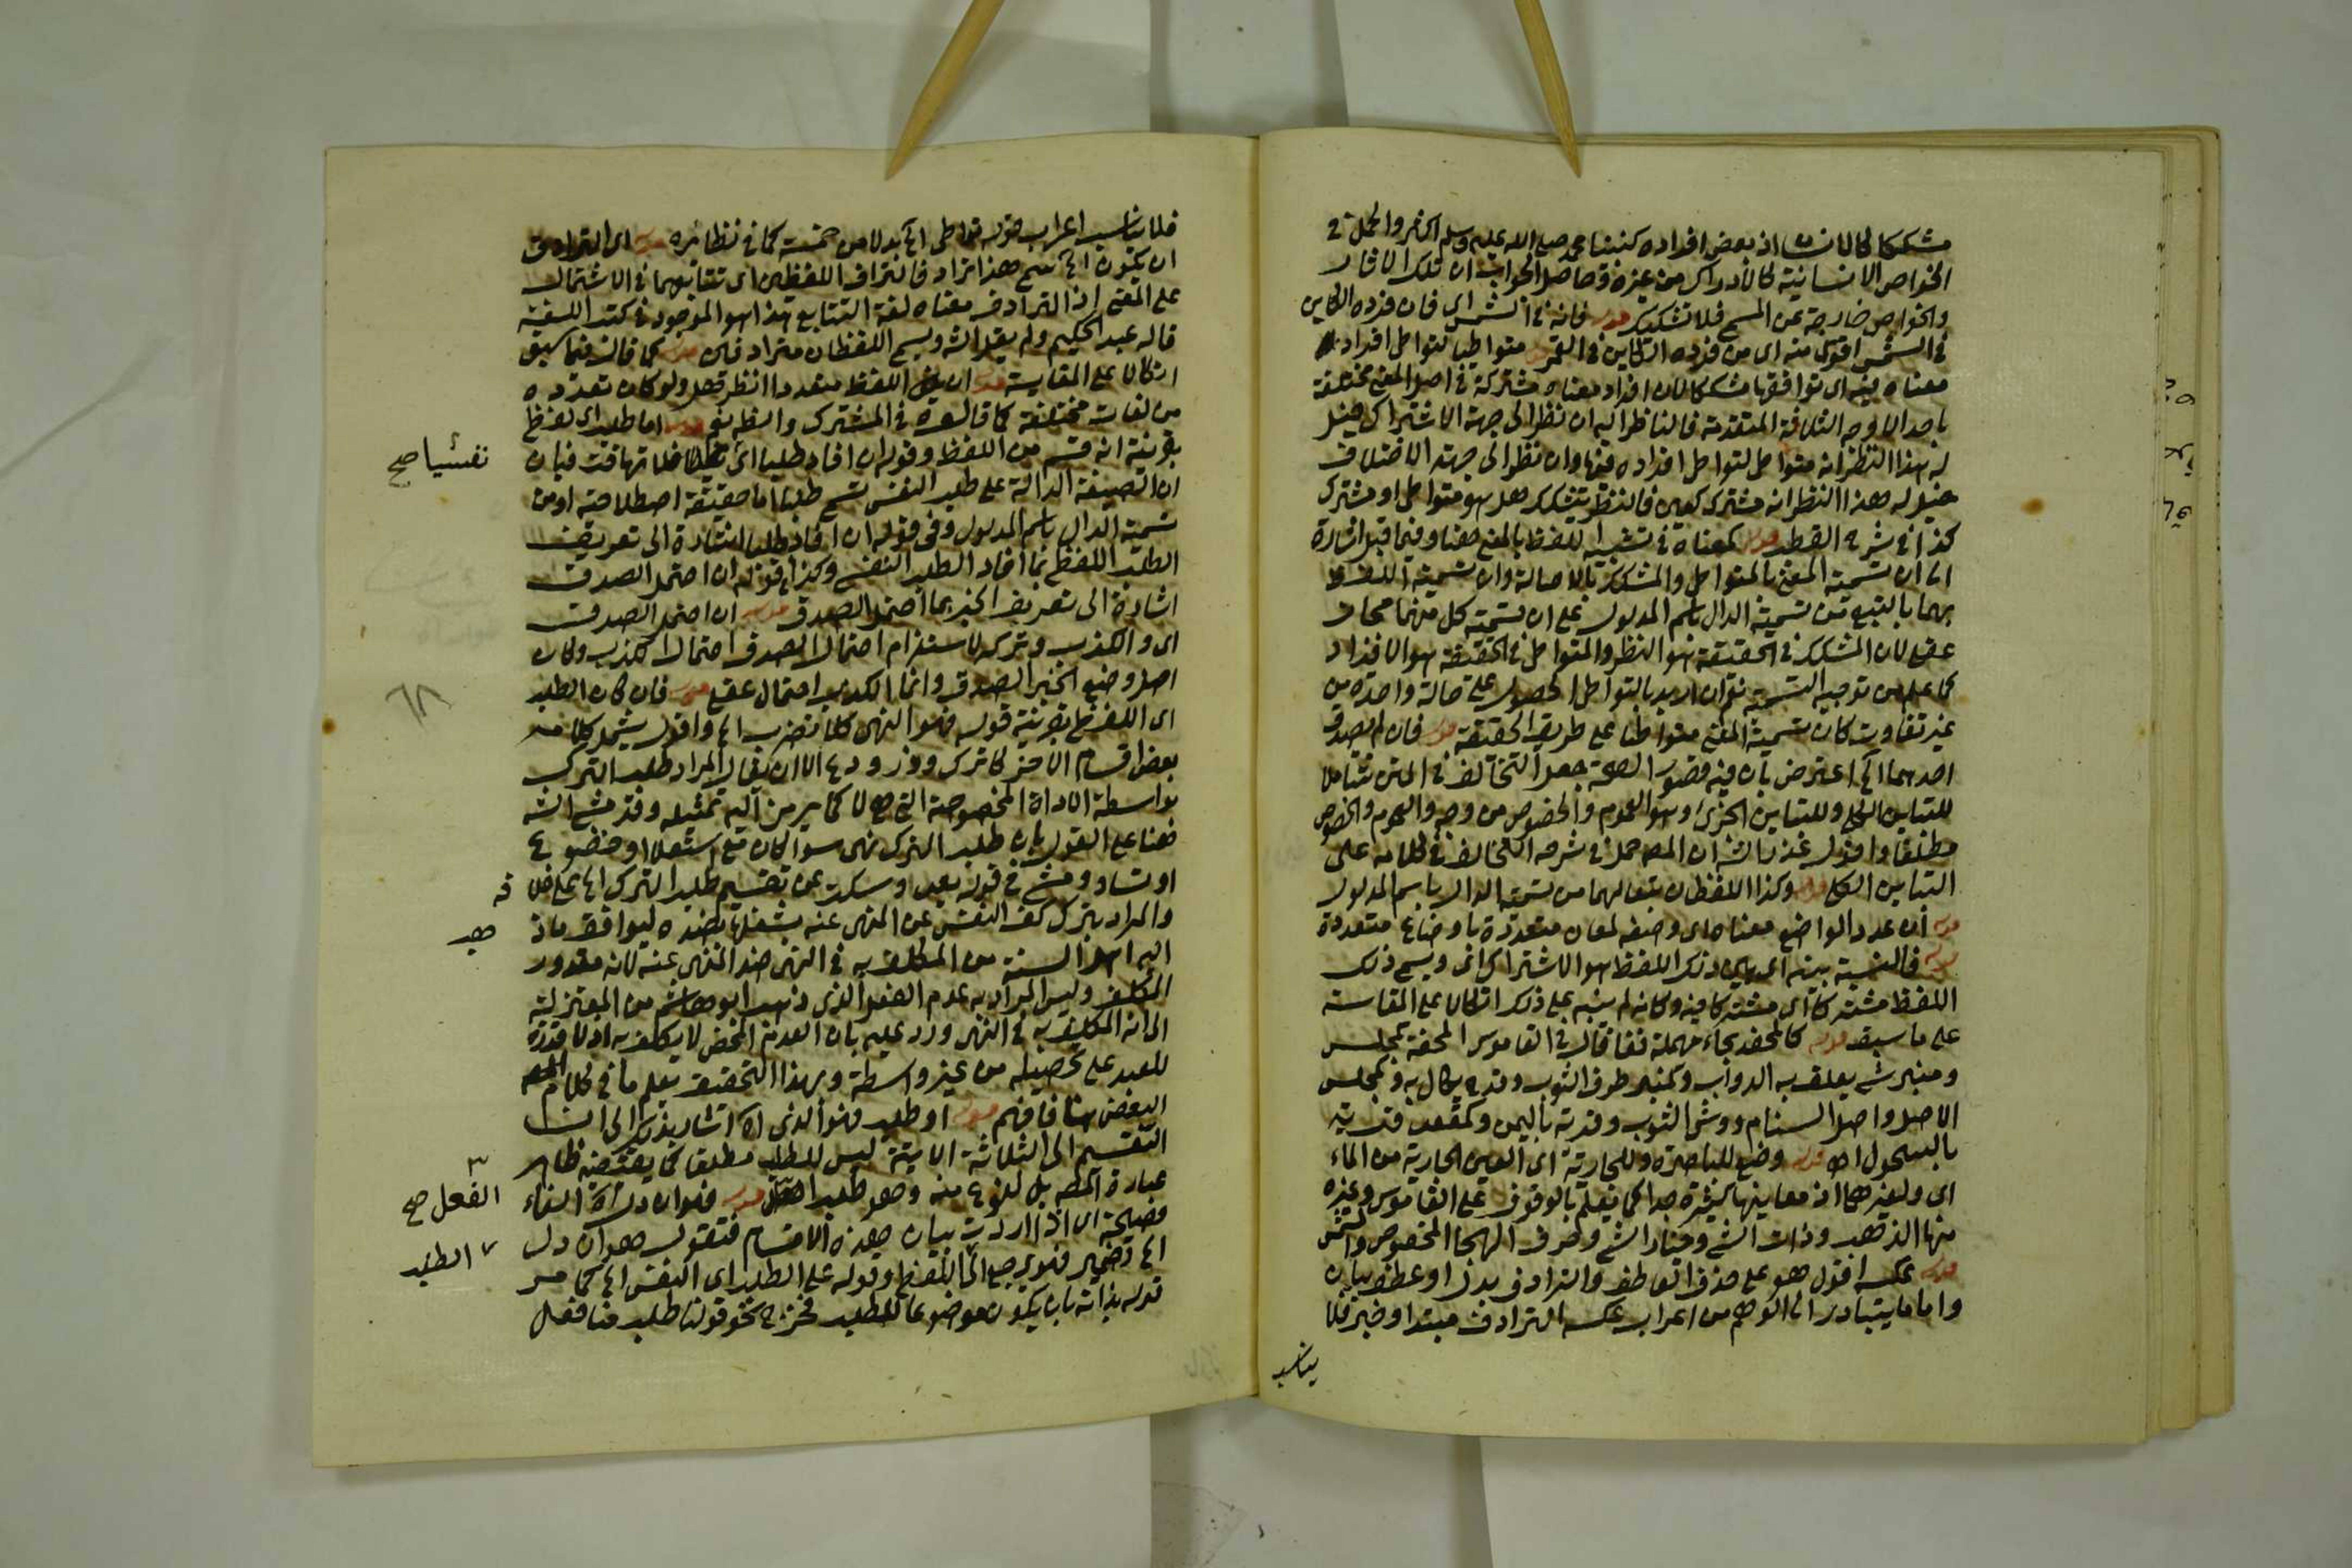 مشككا كالانسان اذ بعض افراده كنبينا محمد صلى الله عليه وسلم
الخواص الانسانية كالادراك من غيره وحاصل الجواب ان تلك الاثار
والخواص خارجة عن المسمى فلا تشكيك قوله فانه في الشمس اى فان فرده الكاين
في الشمس اقوى منه اى من فرده الكاين في القمر قوله متواطيا لتواطى افراد
معناه فيه اى توافقها مشككا لان افراد معناه مشتركة في اصل المعنى مختلفة
باحد الاوجه الثلاثة المتقدمة فالناظر اليه ان نظر الى جهة الاشتراك خيل
له هذا النظر انه متواطى لتواطى افراده فيها وان نظر الى جهة الاختلاف
خيل له هذا النظر انه مشترك كعين فالنظر يتشكك هل هو متواطى او مشترك
كذا في شرح القطب قوله كمعناه في تشبيه اللفظ بالمعنى هنا وفيما قبل اشارة
الى ان تسمية المعنى بالمتواطى والمشكك بالاصالة وان تسمية اللفظ
بهما بالتبع من تسمية الدال باسم المدلول على ان تسمية كل منهما مجاز
عقلى لان المشكك في الحقيقة هو النظر والمتواطى في الحقيقة هو الافراد
كما علم من توجيه التسمية نعم ان اريد بالتواطى الحصول على حالة واحدة من
غير تفاوت كان تسمية المعنى متواطيا على طريق الحقيقة قوله فان لم يصدق
احدهما الخ اعترض بان فيه قصور لصحة جعل التخالف في المتن شاملا
للتباين الكلى وللتباين الجزئ وهو العموم والخصوص من وجه والعموم والخصوص
مطلقا واقول عذر الش ان المص حمل في شرحه التخالف في كلامه على
التباين الكلى قوله وكذا اللفظان بتعالهما من تسمية الدال باسم المدلول
قوله ان عدد الواضع معناه اى وضعه لمعان متعددة باوضاع متعددة
قوله فالنسبة بينه اى بين ذلك اللفظ هو الاشتراك اى ويسمى ذلك
اللفظ مشتركا اى مشتركا فيه وكانه لم ينبه على ذلك اتكالا على المقايسة
على ما سبق قوله كالمحفد بحاء مهملة ففا قال في القاموس المحفد كمجلس
ومنبر شى يعلف به الدواب وكمنبر طرف الثوب وقدح يكال به وكمجلس
الاصل واصل السنام ووشى الثوب وقرية باليمن وكمقعد قرية
بالسحول اهـ قوله وضع للباصرة وللجارية اى العين الجارية من الماء
اى ولغيرهما اذ معانيها كثيرة جدا كما يعلم بالوقوف على القاموس وغيره
منها الذهب وذات الشى وخيار الشى وحرف الهجا المخصوص والشمس
قوله عكسه اقول هو على حذف العاطف والترادف بدل او عطف بيان
واما ما يتبادر الى الوهم من اعراب عكسه الترادف مبتدا وخبر فلا
يناسب
فلا يناسب اعراب قوله تواطى الخ بدلا من خمسة كما في نظائره قوله اى الترادف
ان يكون الخ سمى هذا ترادفا لترادف اللفظين اى تتابعهما في الاشتمال
على المعنى اذ الترادف معناه لغة التتابع هذا هو الموجود في كتب اللغة
قاله عبد الحكيم ولم يقل الش ويسمى اللفظان مترادفين قوله كما قال فيما سبق
اتكالا على المقايسة قوله ان يكون اللفظ متعددا انظر هل ولو كان تعدده
من لغات مختلفة كما قالوه في المشترك والظ نعم قوله اما طلب اى لفظ
بقرينة انه قسم من اللفظ وقوله ان افاد طلبا اى نفسيا فلا تهافت فبان
نفسيا صح
ان الصيغة الدالة على طلب النفس تسمى طلبا اما حقيقة اصطلاحية او من
تسمية الدال باسم المدلول وفي قوله ان افاد طلبا اشارة الى تعريف
الطلب اللفظى بما افاد الطلب النفسى وكذا في قوله ان احتمل الصدق
اشارة الى تعريف الخبر بما احتمل الصدق قوله ان احتمل الصدق
اى والكذب وتركه لاستلزام احتمال الصدق احتمال الكذب ولان
اصل وضع الخبر الصدق وانما الكذب احتمال عقلى قوله فان كان الطلب
٦٨
اى اللفظى بقرينة قوله فهو النهى كلا تضرب الخ واقول يشمل كلامه
بعض اقسام الامر كاترك وذر ودع الا ان يقال المراد طلب الترك
بواسطة الاداة المخصوصة التى هى لا كما يرمز اليه تمثيله وقد مشى الش
هنا على القول بان طلب الترك نهى سوا كان مع استعلا او خضوع
او تساو ومشى في قوله بعد وسكت عن تقسيم طلب الترك الخ على خلافه
والمراد بترك كف النفس عن المنهى عنه بشغلها بضده ليوافق ما ذهب
اليه اهل السنة من المكلف به في النهى ضد المنهى عنه لانه مقدور
المكلف وليس المراد به عدم الفعل الذى ذهب ابو هاشم من المعتزلة
الى انه المكلف به في النهى ورد عليه بان العدم المحض لا يكلف به اذ لا قدرة
للعبد على تحصيله من غير واسطة وبهذا التحقيق يعلم ما في كلام
البعض هنا فافهم قوله او طلب فهو الذى الخ اشار بذلك الى ان
التقسيم الى الثلاثة الاتية ليس للطلب مطلقا كما يقتضيه ظاهر
عبارة المص بل لنوع منه وهو طلب الفعل قوله فهو ان دل الخ الفاء
الفعل صح
فصيحة اى اذا اردت بيان هذه الاقسام فتقول هو ان دل
الخ فضمير فهو يرجع الى اللفظ وقوله على الطلب اى النفسى الخ كما مر
الطلب
قوله بذاته بان يكون موضوعا للطلب فخرج نحو قولنا طلب منا فعل